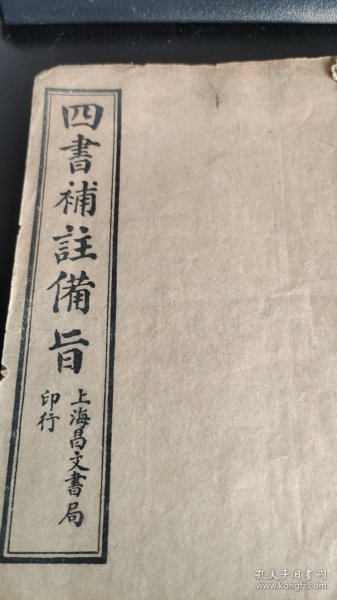 四書補註備旨
上海昌文書局
印行
孔夫子旧书网
www.kongfz.com